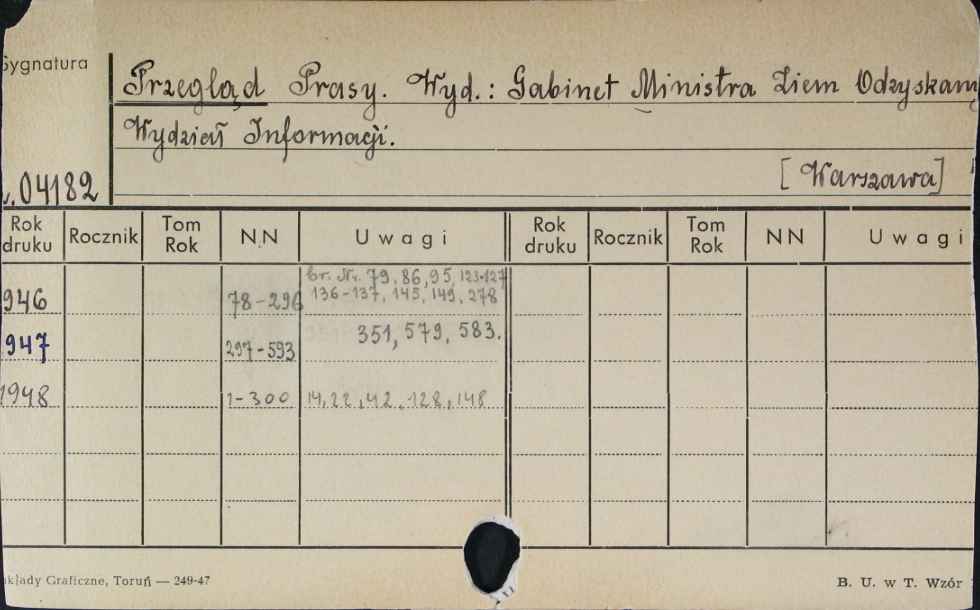 Sygnatura
Przegląd Prasy. Wyd.: Gabinet Ministra Ziem Odzyskany
Wydział Informacji.
[Warszawa]
04182
Rok druku Rocznik Tom Rok N.N Uwagi Rok druku Rocznik Tom Rok NN Uwagi
br. Nr. 79, 86, 95, 123-127
946 78-296 136-137, 145, 149, 278
947 297-593 351, 579, 583.
1948 1-300 14, 22, 42, 128, 148
kłady Graficzne, Toruń — 249-47 B. U. w T. Wzór